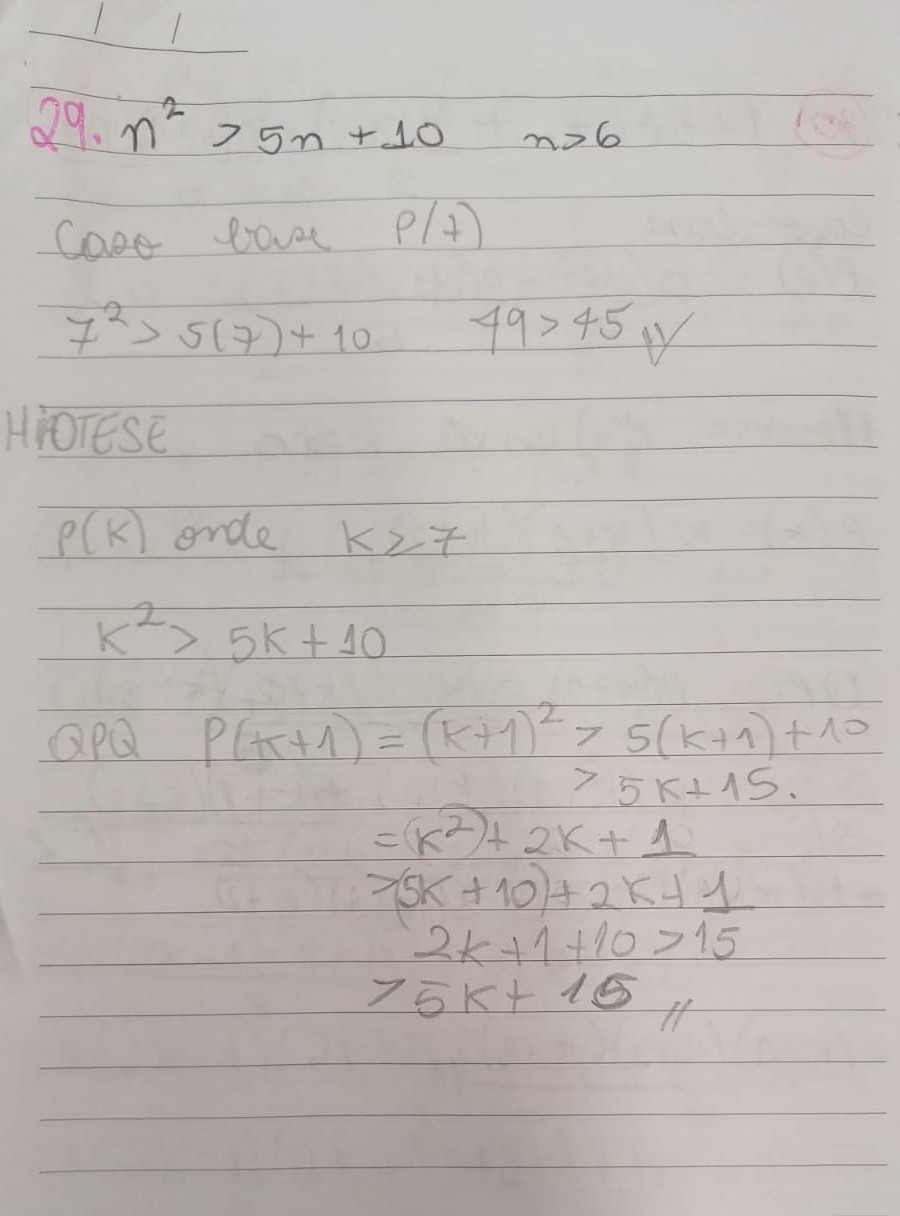 29. n² > 5n + 10 n>6
Caso base P(7)
7² > 5(7) + 10 49 > 45 //
HIOTESE
P(K) onde K ≥ 7
K² > 5K + 10
QPQ P(K+1) = (K+1)² > 5(K+1) + 10
> 5K + 15.
= (K²) + 2K + 1
> (5K + 10) + 2K + 1
2K + 1 + 10 > 15
> 5K + 15 //